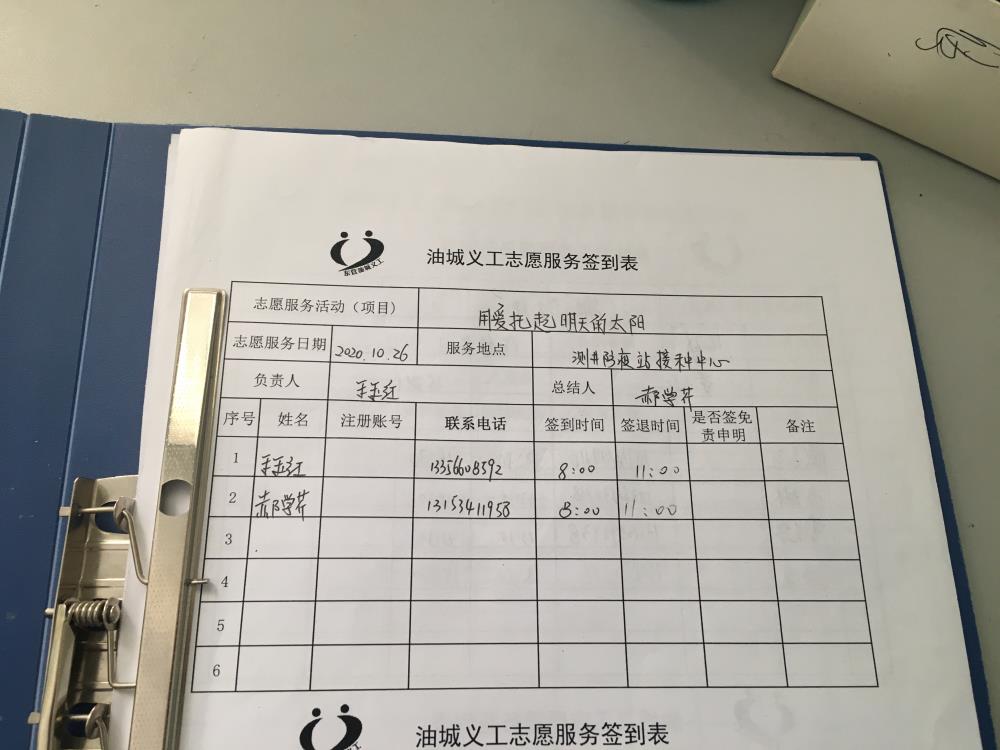 东营油城义工
油城义工志愿服务签到表
志愿服务活动（项目） 用爱托起明天的太阳
志愿服务日期 2020.10.26 服务地点 测井防疫站接种中心
负责人 王玉红 总结人 郝学芹
序号 姓名 注册账号 联系电话 签到时间 签退时间 是否签免责申明 备注
1 王玉红 13356608592 8:00 11:00
2 郝学芹 13153411958 8:00 11:00
3
4
5
6
油城义工志愿服务签到表